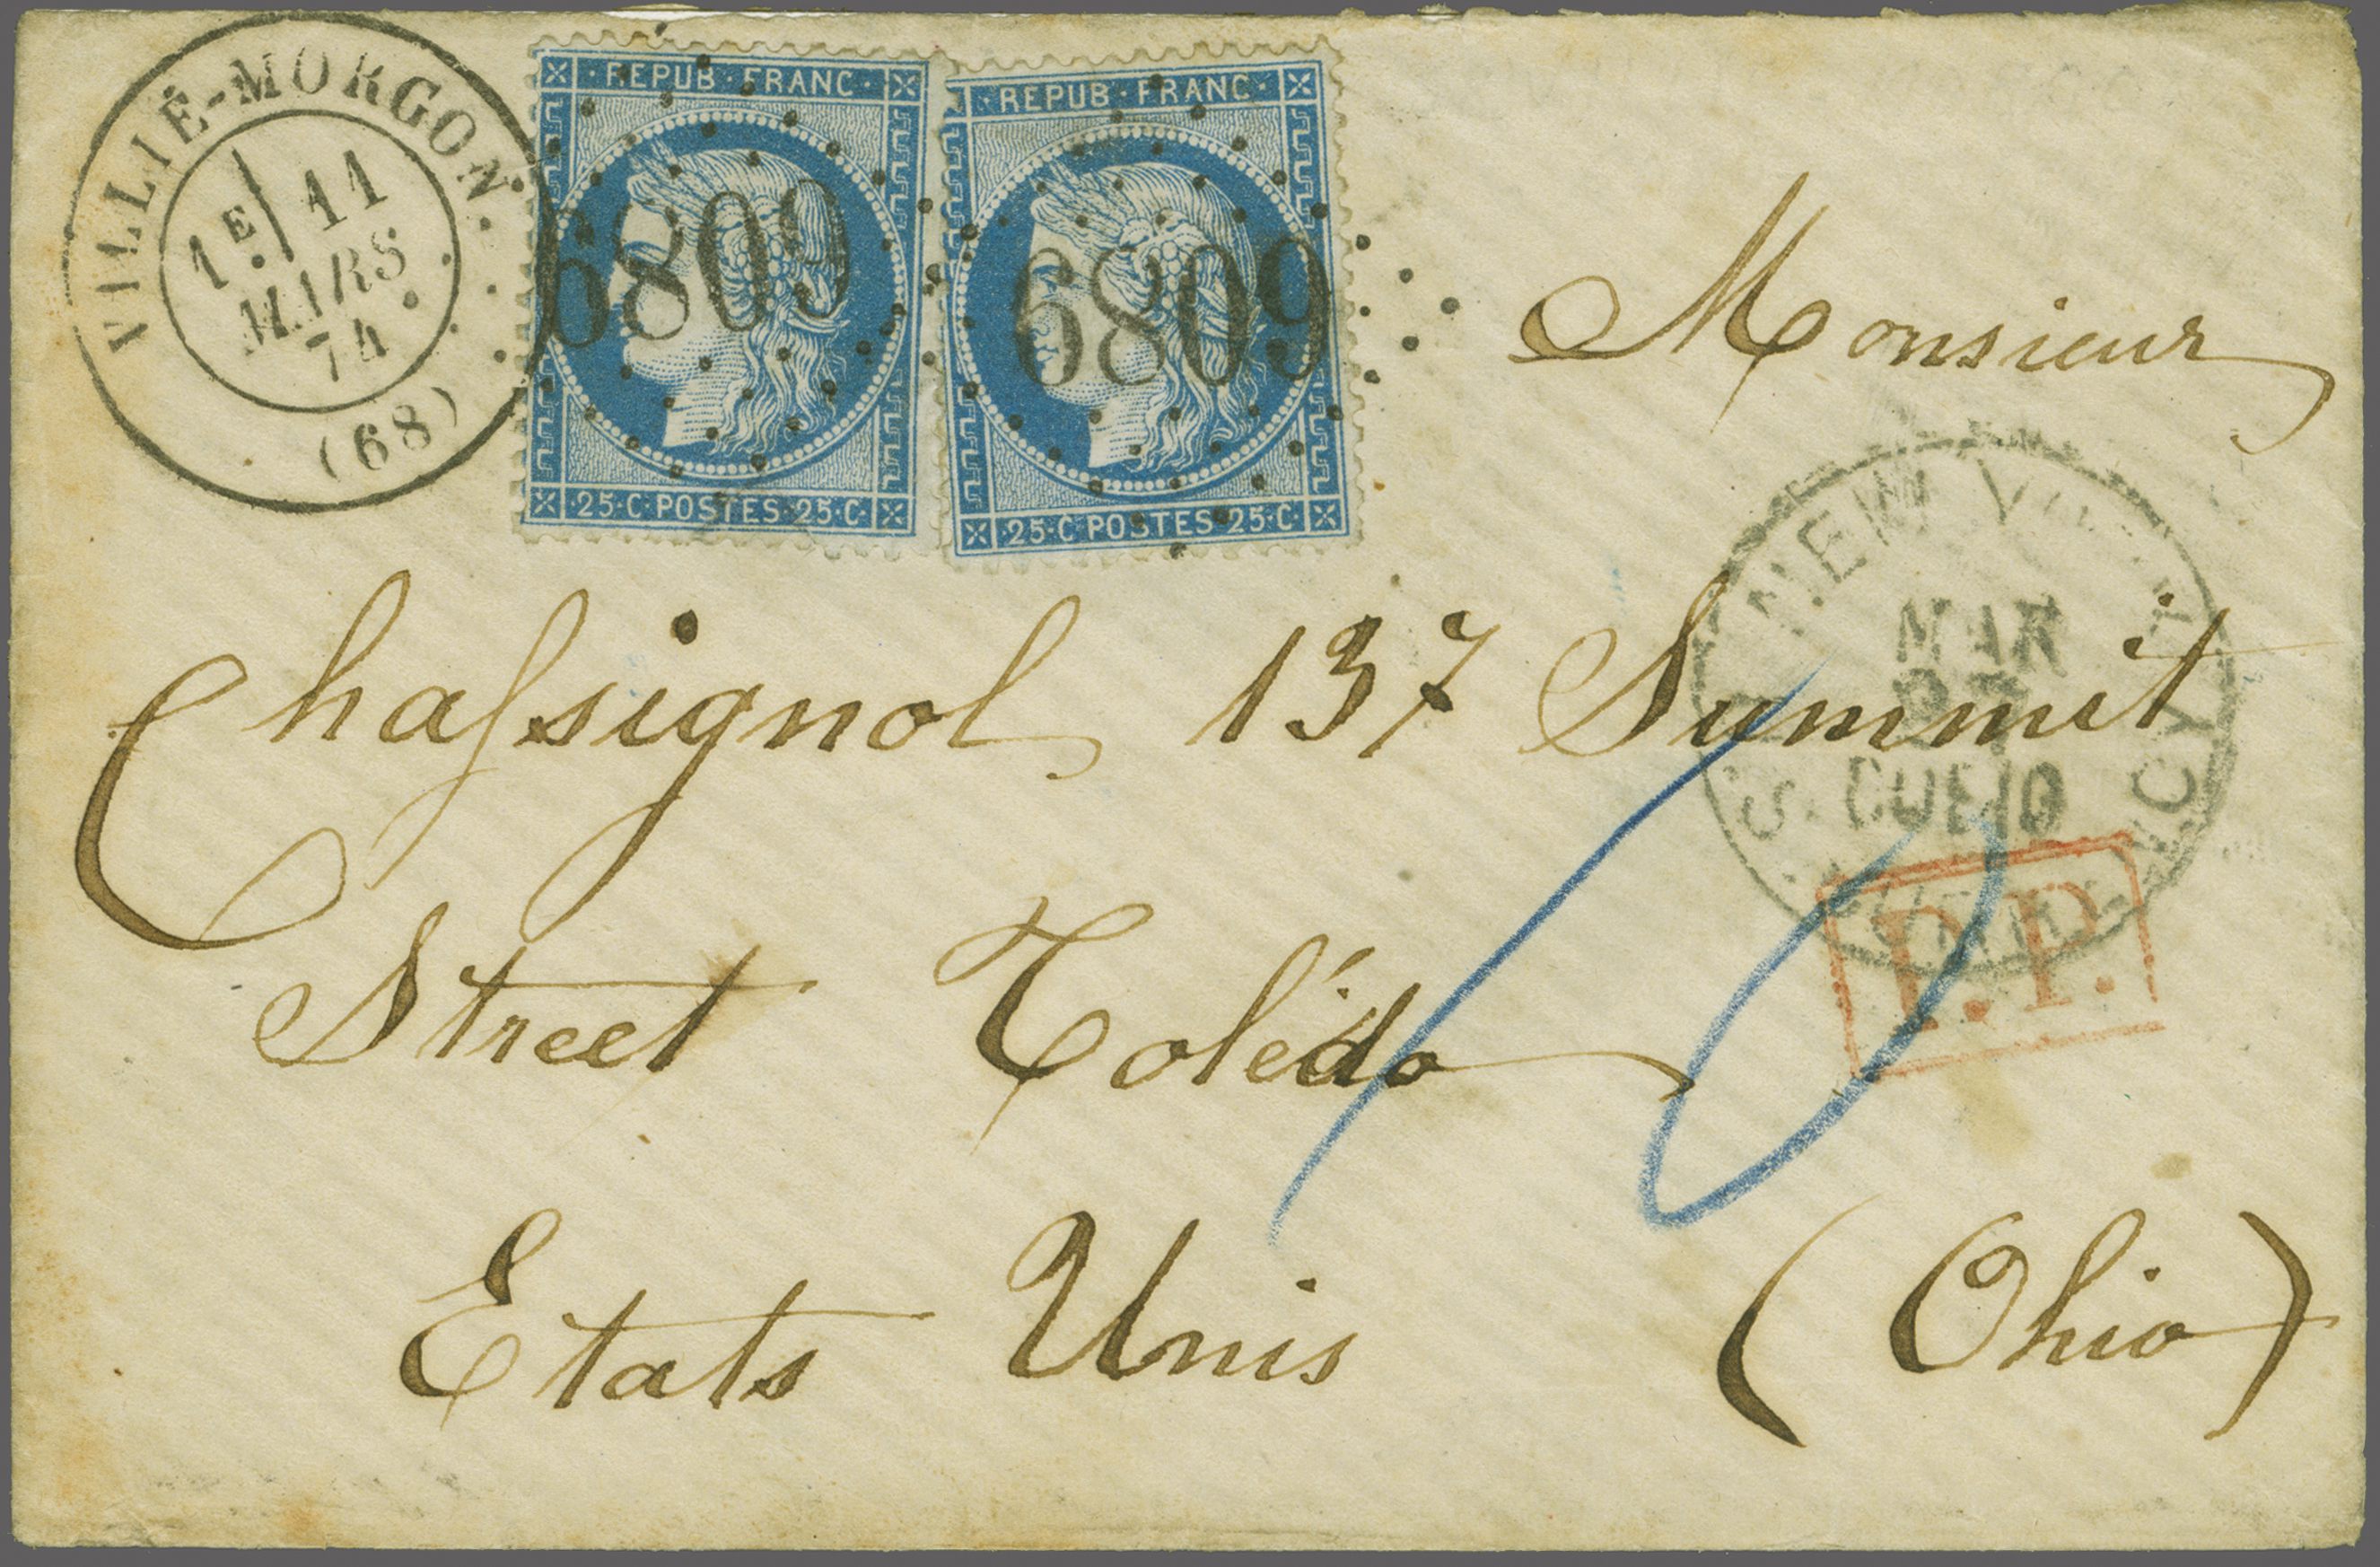 VILLIÉ-MORGON.
1E. 11
MARS
74
(68)
REPUB·FRANC·
6809
·25·C·POSTES·25·C·
·REPUB·FRANC·
6809
·25·C·POSTES·25·C·
Monsieur
NEW
MAR
DUE 10
U.S. CURRENCY
P.P.
Chassignol 137 Summit
Street Tolédo
10
Etats Unis (Ohio)